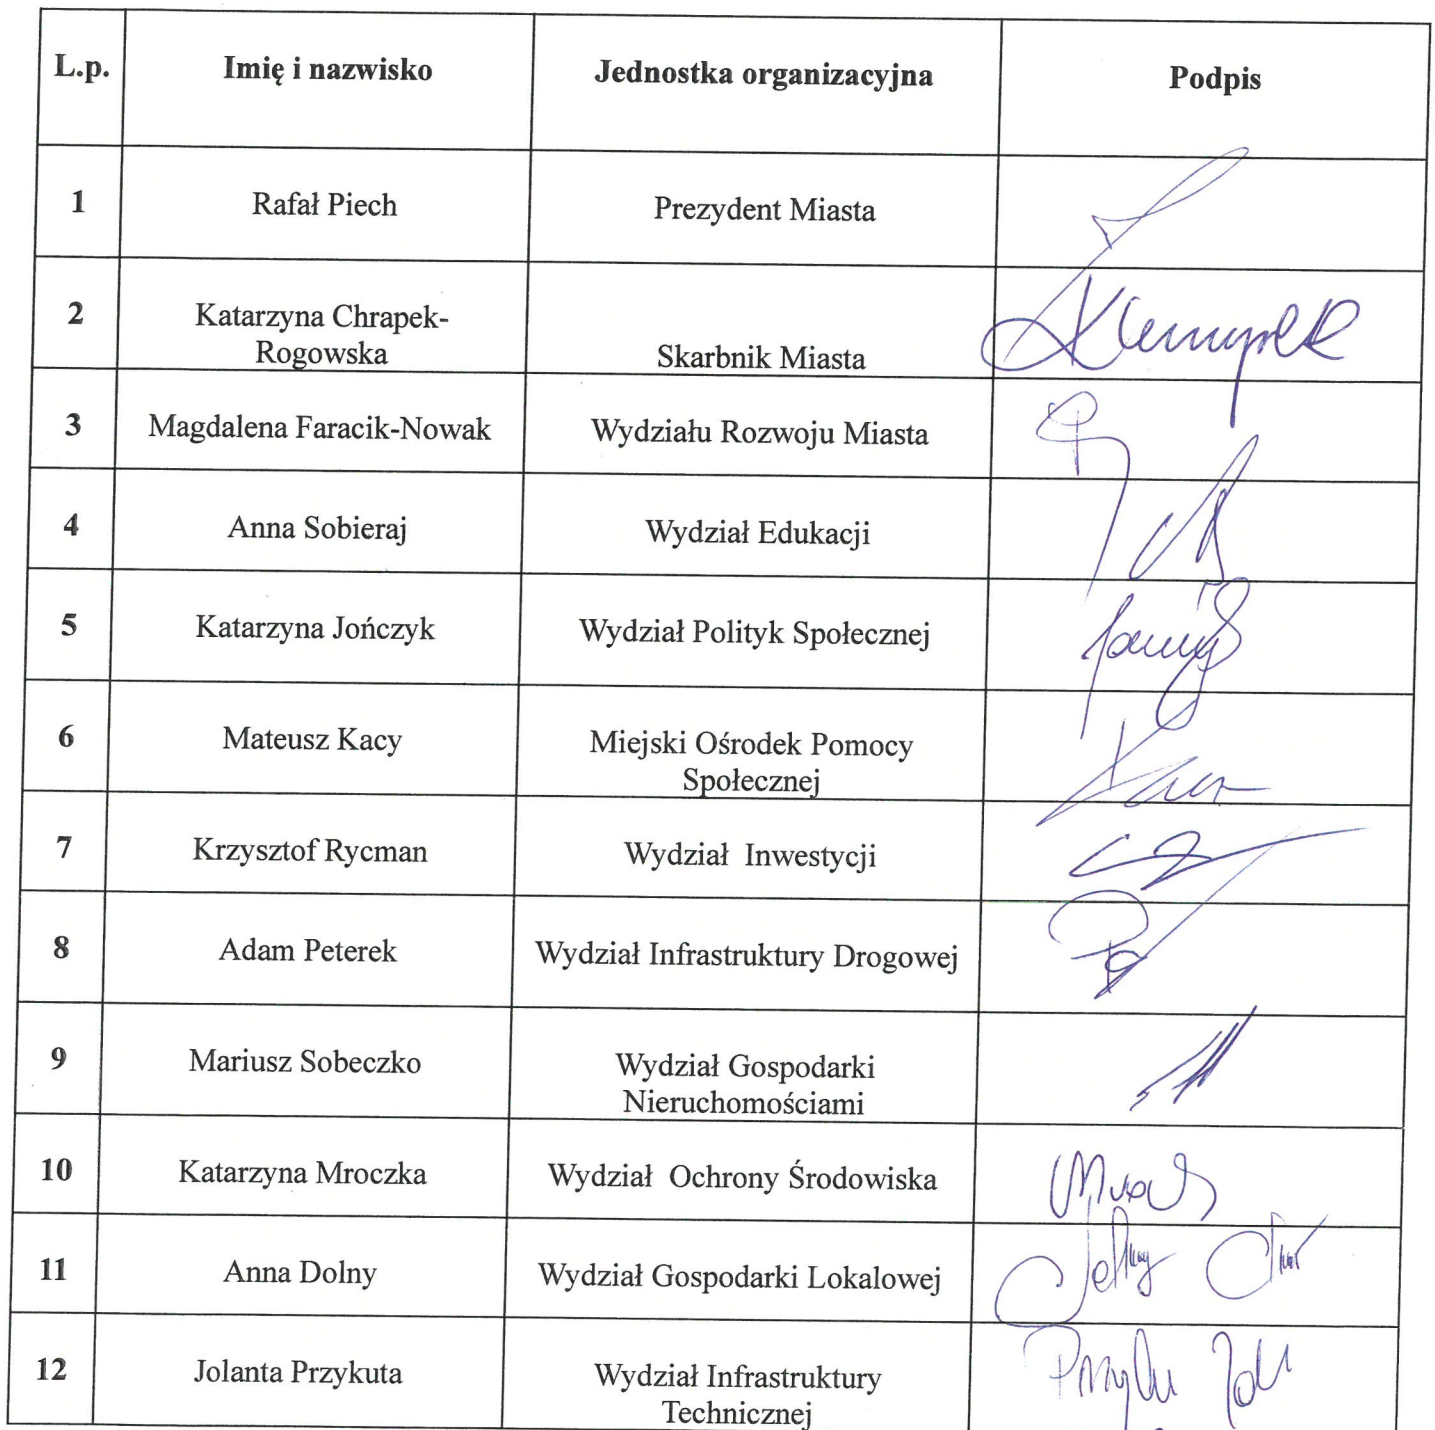 L.p. Imię i nazwisko Jednostka organizacyjna Podpis
1 Rafał Piech Prezydent Miasta
2 Katarzyna Chrapek-
Rogowska Skarbnik Miasta
3 Magdalena Faracik-Nowak Wydziału Rozwoju Miasta
4 Anna Sobieraj Wydział Edukacji
5 Katarzyna Jończyk Wydział Polityk Społecznej
6 Mateusz Kacy Miejski Ośrodek Pomocy
Społecznej
7 Krzysztof Rycman Wydział Inwestycji
8 Adam Peterek Wydział Infrastruktury Drogowej
9 Mariusz Sobeczko Wydział Gospodarki
Nieruchomościami
10 Katarzyna Mroczka Wydział Ochrony Środowiska
11 Anna Dolny Wydział Gospodarki Lokalowej
12 Jolanta Przykuta Wydział Infrastruktury
Technicznej